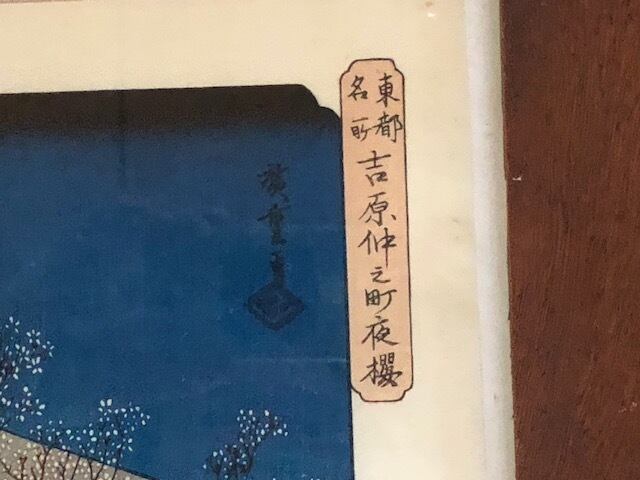 東都
名所
吉原仲之町夜櫻
廣重画